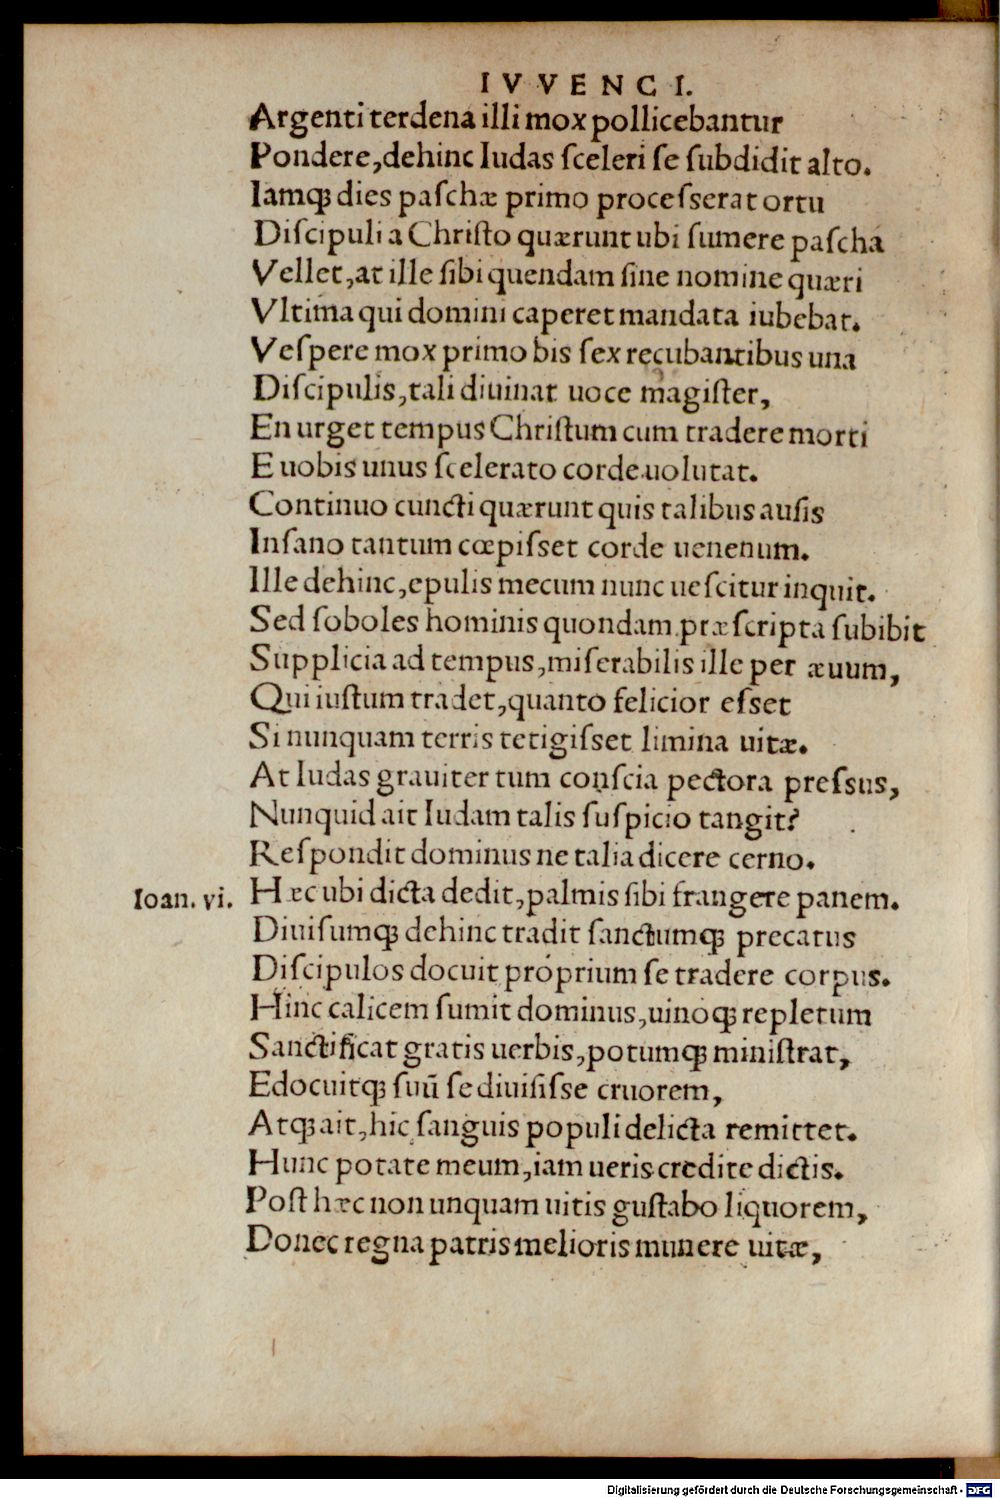 IVVENCI.
Argenti terdena illi mox pollicebantur
Pondere, dehinc Iudas sceleri se subdidit alto.
Iamq; dies paschæ primo processerat ortu
Discipuli a Christo quærunt ubi sumere pascha
Vellet, at ille sibi quendam sine nomine quæri
Vltima qui domini caperet mandata iubebat.
Vespere mox primo bis sex recubantibus una
Discipulis, tali diuinat uoce magister,
En urget tempus Christum cum tradere morti
E uobis unus scelerato corde uolutat.
Continuo cuncti quærunt quis talibus ausis
Insano tantum cœpisset corde uenenum.
Ille dehinc, epulis mecum nunc uescitur inquit.
Sed soboles hominis quondam præscripta subibit
Supplicia ad tempus, miserabilis ille per æuum,
Qui iustum tradet, quanto felicior esset
Si nunquam terris tetigisset limina uitæ.
At Iudas grauiter tum conscia pectora pressus,
Nunquid ait Iudam talis suspicio tangit?
Respondit dominus ne talia dicere cerno.
Ioan. vi. Hæc ubi dicta dedit, palmis sibi frangere panem.
Diuisumq; dehinc tradit sanctumq; precatus
Discipulos docuit próprium se tradere corpus.
Hinc calicem sumit dominus, uinoq; repletum
Sanctificat gratis uerbis, potumq; ministrat,
Edocuitq; suū se diuisisse cruorem,
Atq; ait, hic sanguis populi delicta remittet.
Hunc potate meum, iam ueris credite dictis.
Post hæc non unquam uitis gustabo liquorem,
Donec regna patris melioris munere uitæ,
Digitalisierung gefördert durch die Deutsche Forschungsgemeinschaft - DFG